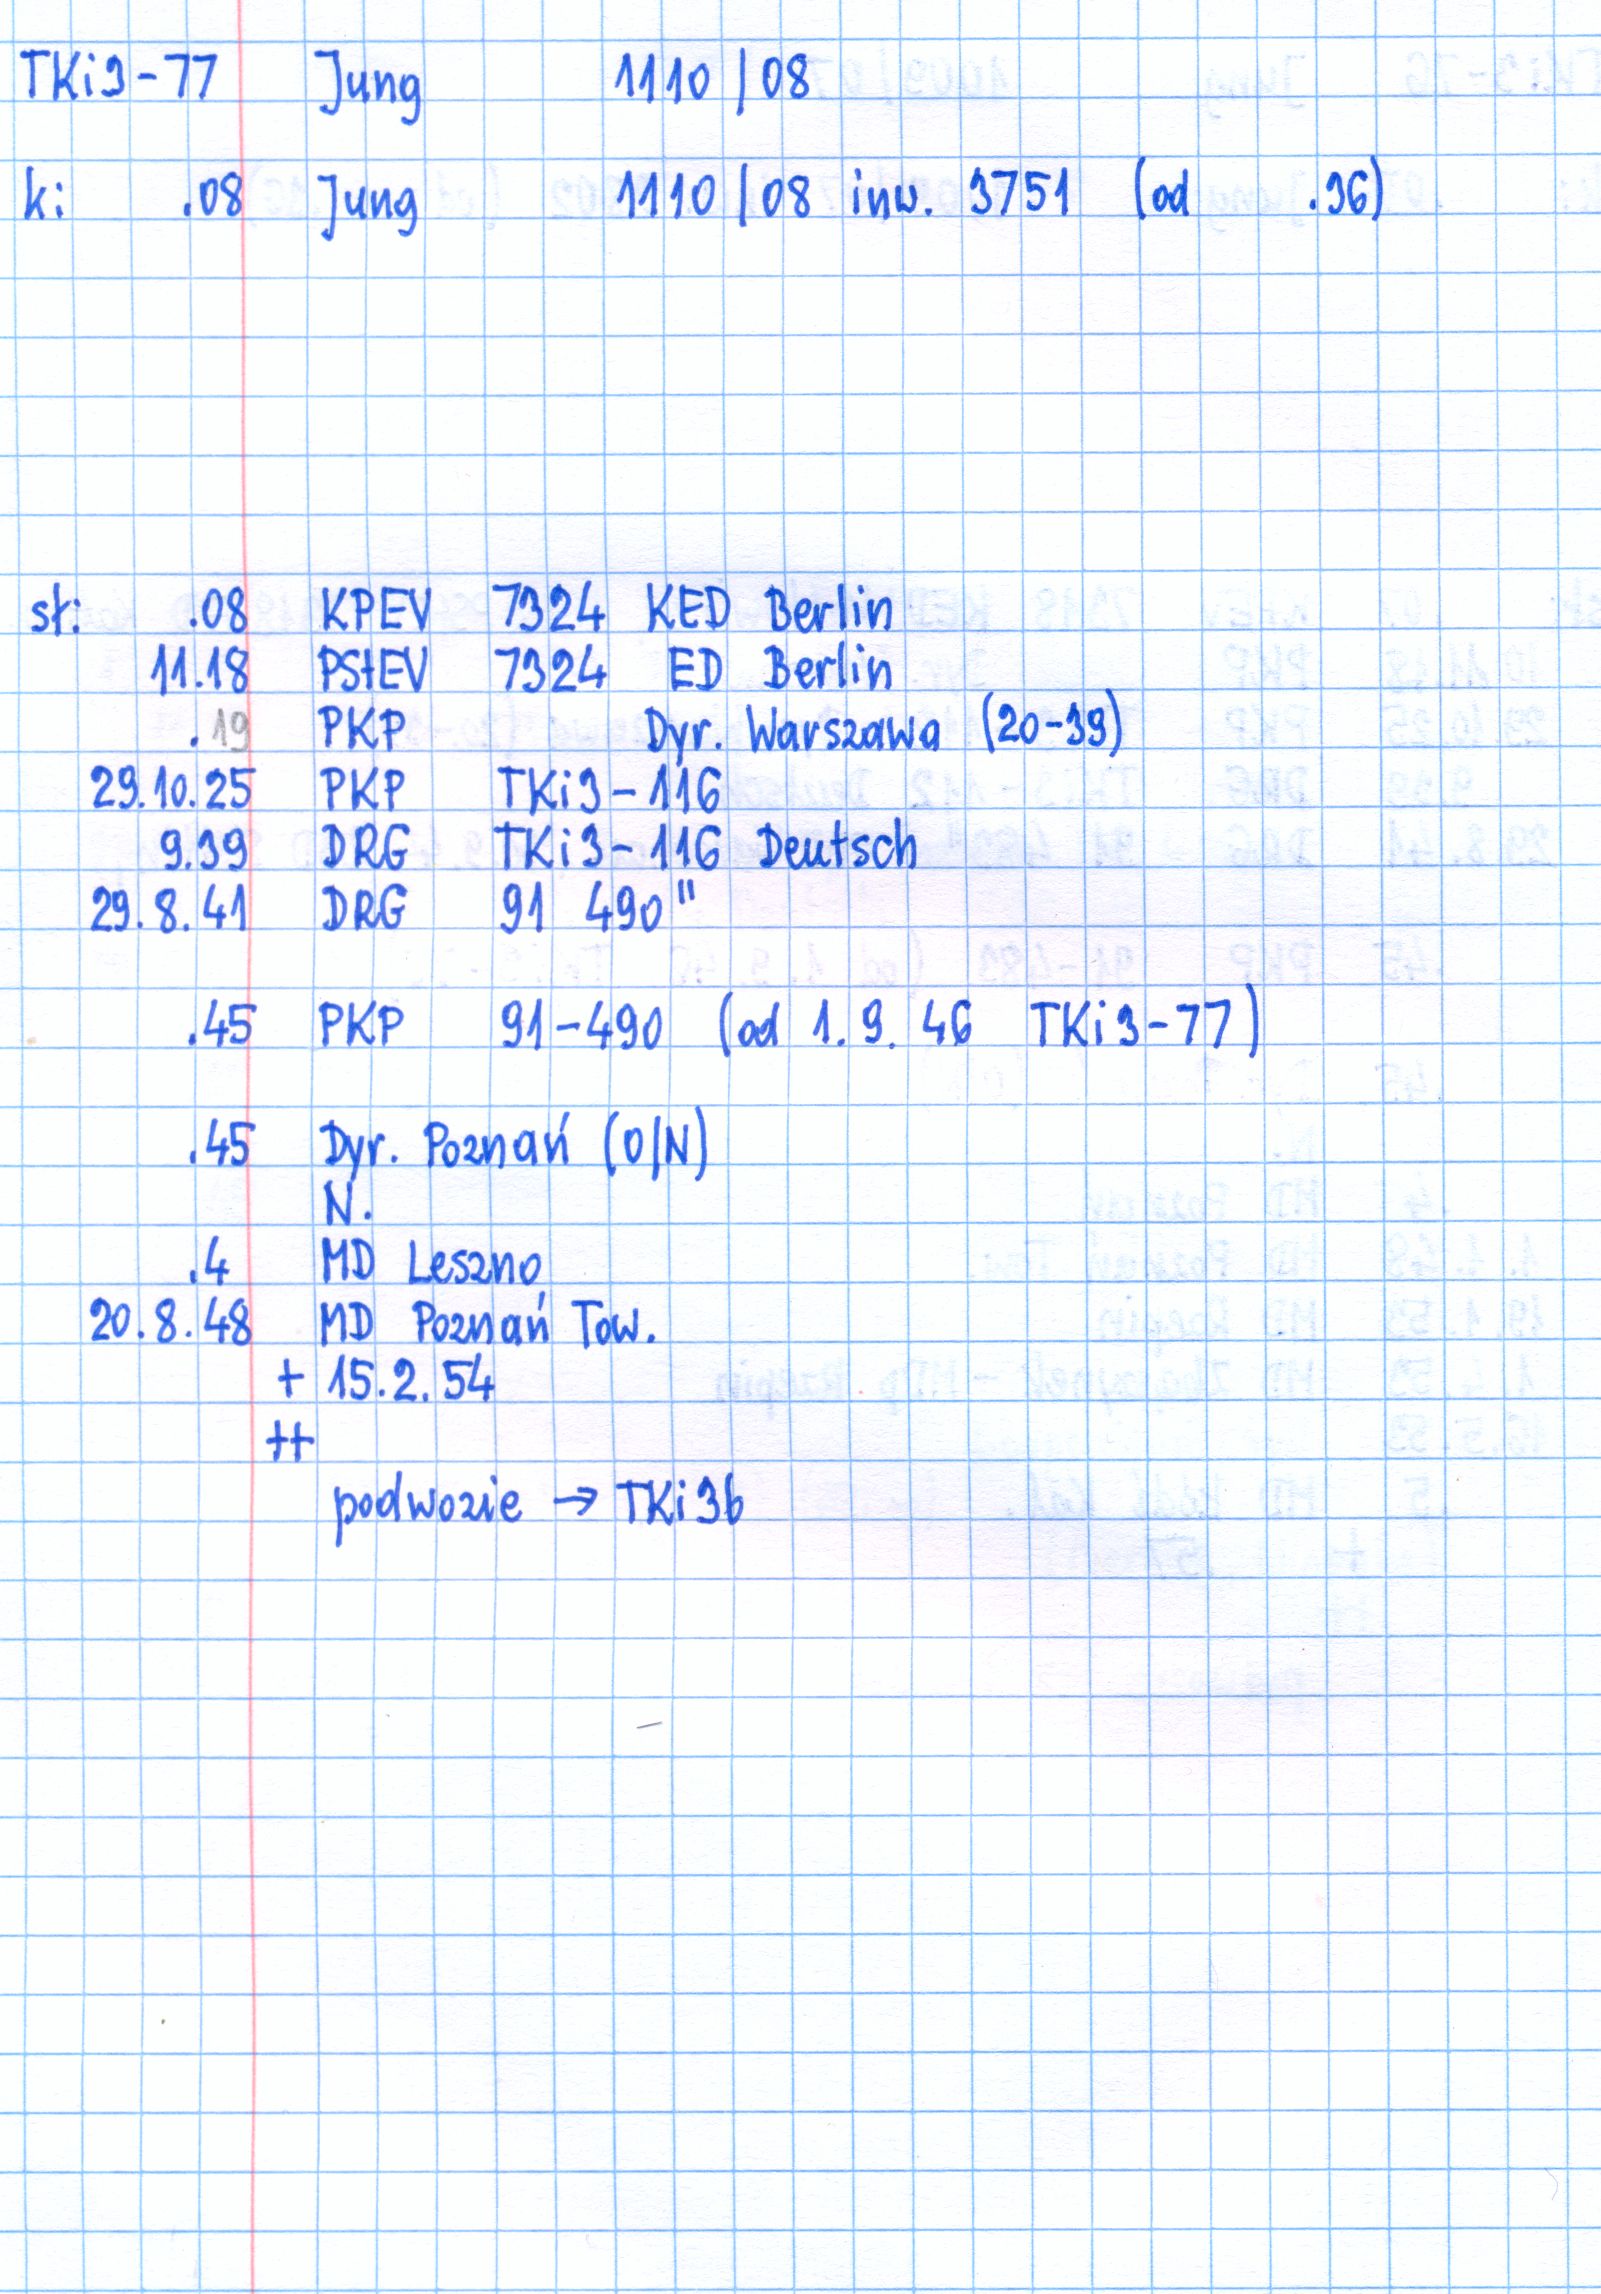 TKi3-77 Jung 1110/08
k: .08 Jung 1110/08 inw. 3751 (od .36)
st: .08 KPEV 7324 KED Berlin
11.18 PStEV 7324 ED Berlin
.19 PKP Dyr. Warszawa (20-39)
29.10.25 PKP TKi3-116
9.39 DRG TKi3-116 Deutsch
29.8.41 DRG 91 490"
.45 PKP 91-490 (od 1.9.46 TKi3-77)
.45 Dyr. Poznań (O/N)
N.
.4 MD Leszno
20.8.48 MD Poznań Tow.
+ 15.2.54
++
podwozie → TKi3b